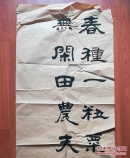 春種一粒粟
無閑田農夫